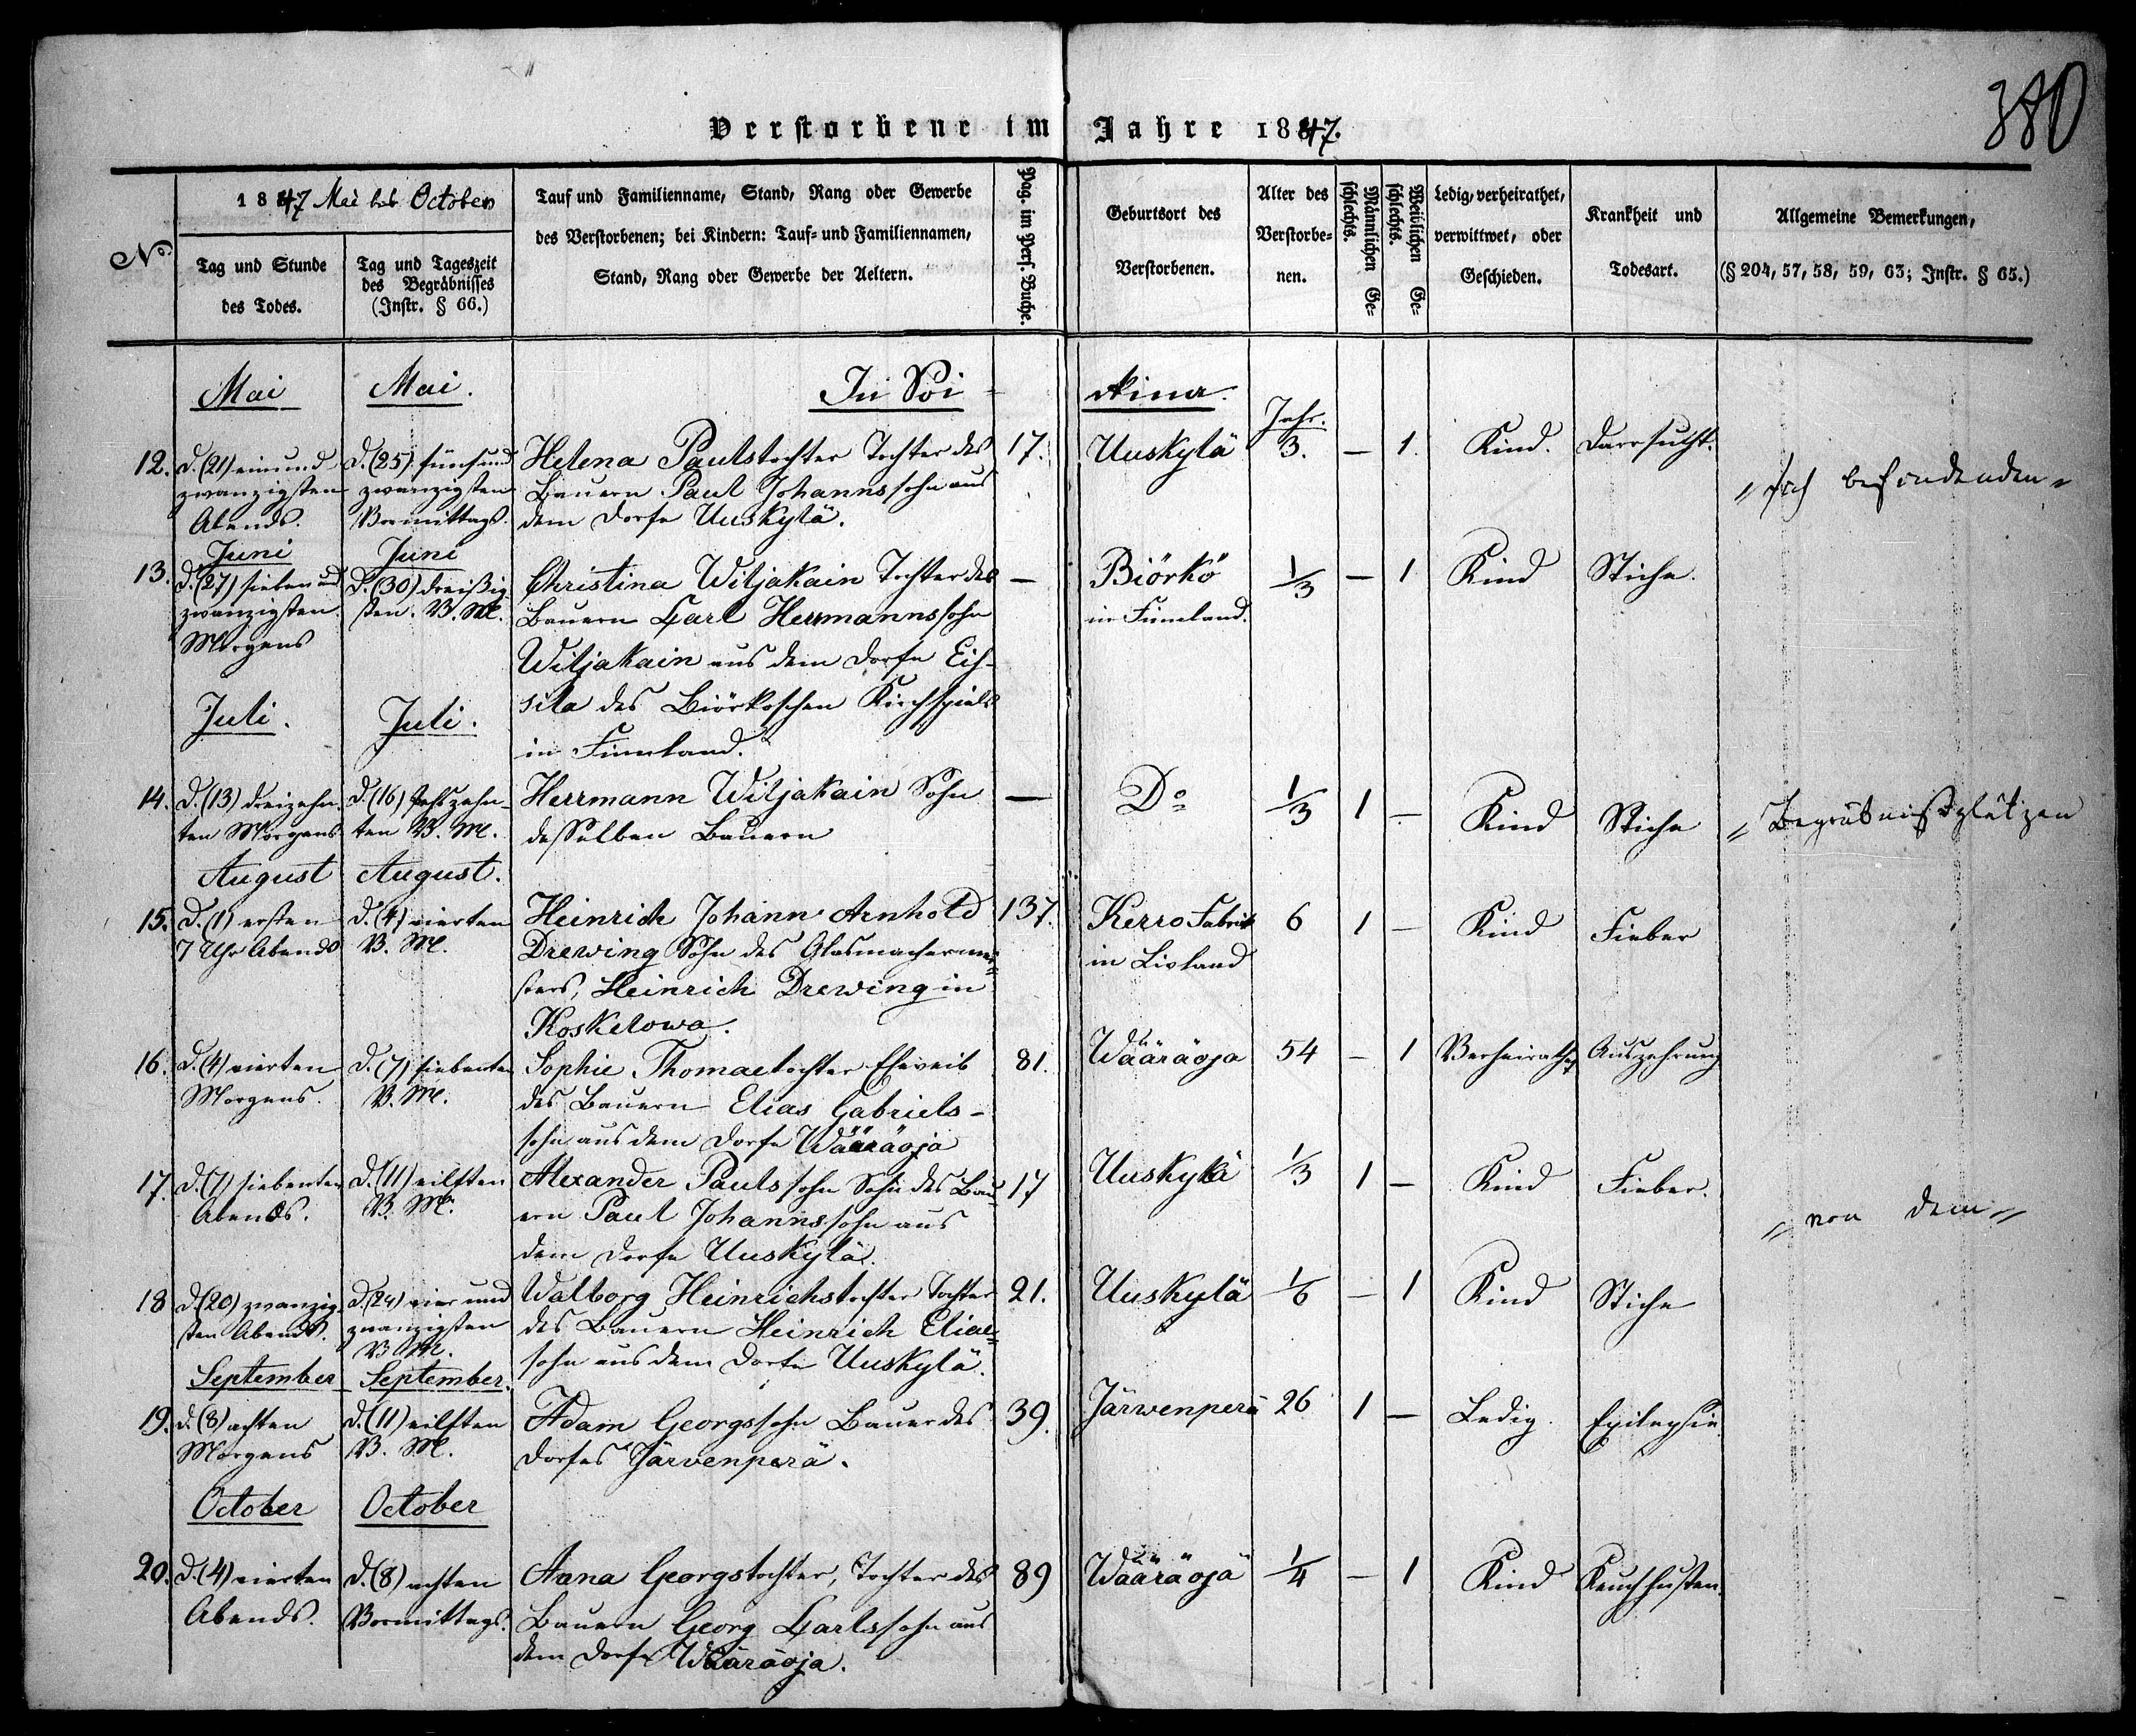 380
Verstorbene im Jahre 1847.
No.
1847 Mai bis October
Tag und Stunde
des Todes.
Tag und Tageszeit
des Begräbnisses
(Instr. § 66.)
Tauf und Familienname, Stand, Rang oder Gewerbe
des Verstorbenen; bei Kindern: Tauf- und Familiennamen,
Stand, Rang oder Gewerbe der Aeltern.
Pag. im Pers. Buche.
Geburtsort des
Verstorbenen.
Alter des
Verstorbe-
nen.
Männlichen Ge-
schlechts.
Weiblichen Ge-
schlechts.
Ledig, verheirathet,
verwittwet, oder
Geschieden.
Krankheit und
Todesart.
Allgemeine Bemerkungen,
(§ 204, 57, 58, 59, 63; Instr. § 65.)
Mai
Mai.
In Soi-
kina.
12.
d. (21) ein und
zwanzigsten
Abends.
d. (25) fünf und
zwanzigsten
Vormittags.
Helena Paulstochter Tochter des
Bauern Paul Johannssohn aus
dem Dorfe Uuskylä.
17.
Uuskylä
Jahr.
3.
—
1.
Kind.
Darrsucht.
sich befindenden
Juni
Juni
13.
d. (27) sieben und
zwanzigsten
Morgens
d. (30) dreißig-
sten. V. M.
Christina Wiljakain Tochter des
Bauern Carl Herrmannssohn
Wiljakain aus dem Dorfe Eis-
sila des Biörkoschen Kirchspiels
in Finnland.
—
Biörkö
in Finnland.
1/3
—
1
Kind
Stiche.
Juli.
Juli.
14.
d. (13) dreizehn-
ten Morgens
d. (16) sechszehn-
ten V. M.
Herrmann Wiljakain Sohn
desselben Bauern
—
Do
1/3
1
—
Kind
Stiche
Begräbnißplätzen
August
August.
15.
d. (1) ersten
7 Uhr Abends
d. (4) vierten
V. M.
Heinrich Johann Arnhold
Drewing Sohn des Glasmachermei-
sters, Heinrich Drewing in
Koskelowa.
137.
Kerro Fabrik
in Livland
6
1
—
Kind
Fieber
16.
d. (4) vierten
Morgens.
d. (7) siebenten
V. M.
Sophie Thomaetochter Eheweib
des Bauern Elias Gabriels-
sohn aus dem Dorfe Wääräoja
81.
Wääräoja
54
—
1
Verheirathet
Auszehrung
17.
d. (7) siebenten
Abends.
d. (11) eilften
V. M.
Alexander Paulssohn Sohn des Bau-
ern Paul Johannssohn aus
dem Dorfe Uuskylä.
17
Uuskylä
1/3
1
—
Kind
Fieber.
von dem
18
d. (20) zwanzig-
sten Abends.
d. (24) vier und
zwanzigsten
V. M.
Walborg Heinrichstochter Tochter
des Bauern Heinrich Elias-
sohn aus dem Dorfe Uuskylä.
21.
Uuskylä
1/6
—
1
Kind
Stiche
September
September.
19.
d. (8) achten
Morgens
d. (11) eilften
V. M.
Adam Georgssohn Bauer des
Dorfes Järvenperä.
39.
Järwenperä
26
1
—
Ledig.
Epilepsie
October
October
20.
d. (4) vierten
Abends.
d. (8) achten
Vormittags.
Anna Georgstochter, Tochter des
Bauern Georg Carlssohn aus
dem Dorfe Wääräoja.
89
Wääräoja
1/4
—
1
Kind
Keuchhusten.